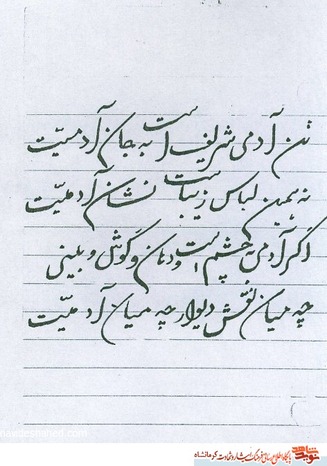 تن آدمی شریف است به جان آدمیت
نه همین لباس زیباست نشان آدمیت
اگر آدمی به چشم است و دهان و گوش و بینی
چه میان نقش دیوار چه میان آدمیت
navideshahed.com
پایگاه اطلاع رسانی فرهنگ ایثار و شهادت کرمانشاه
نوید شاهد